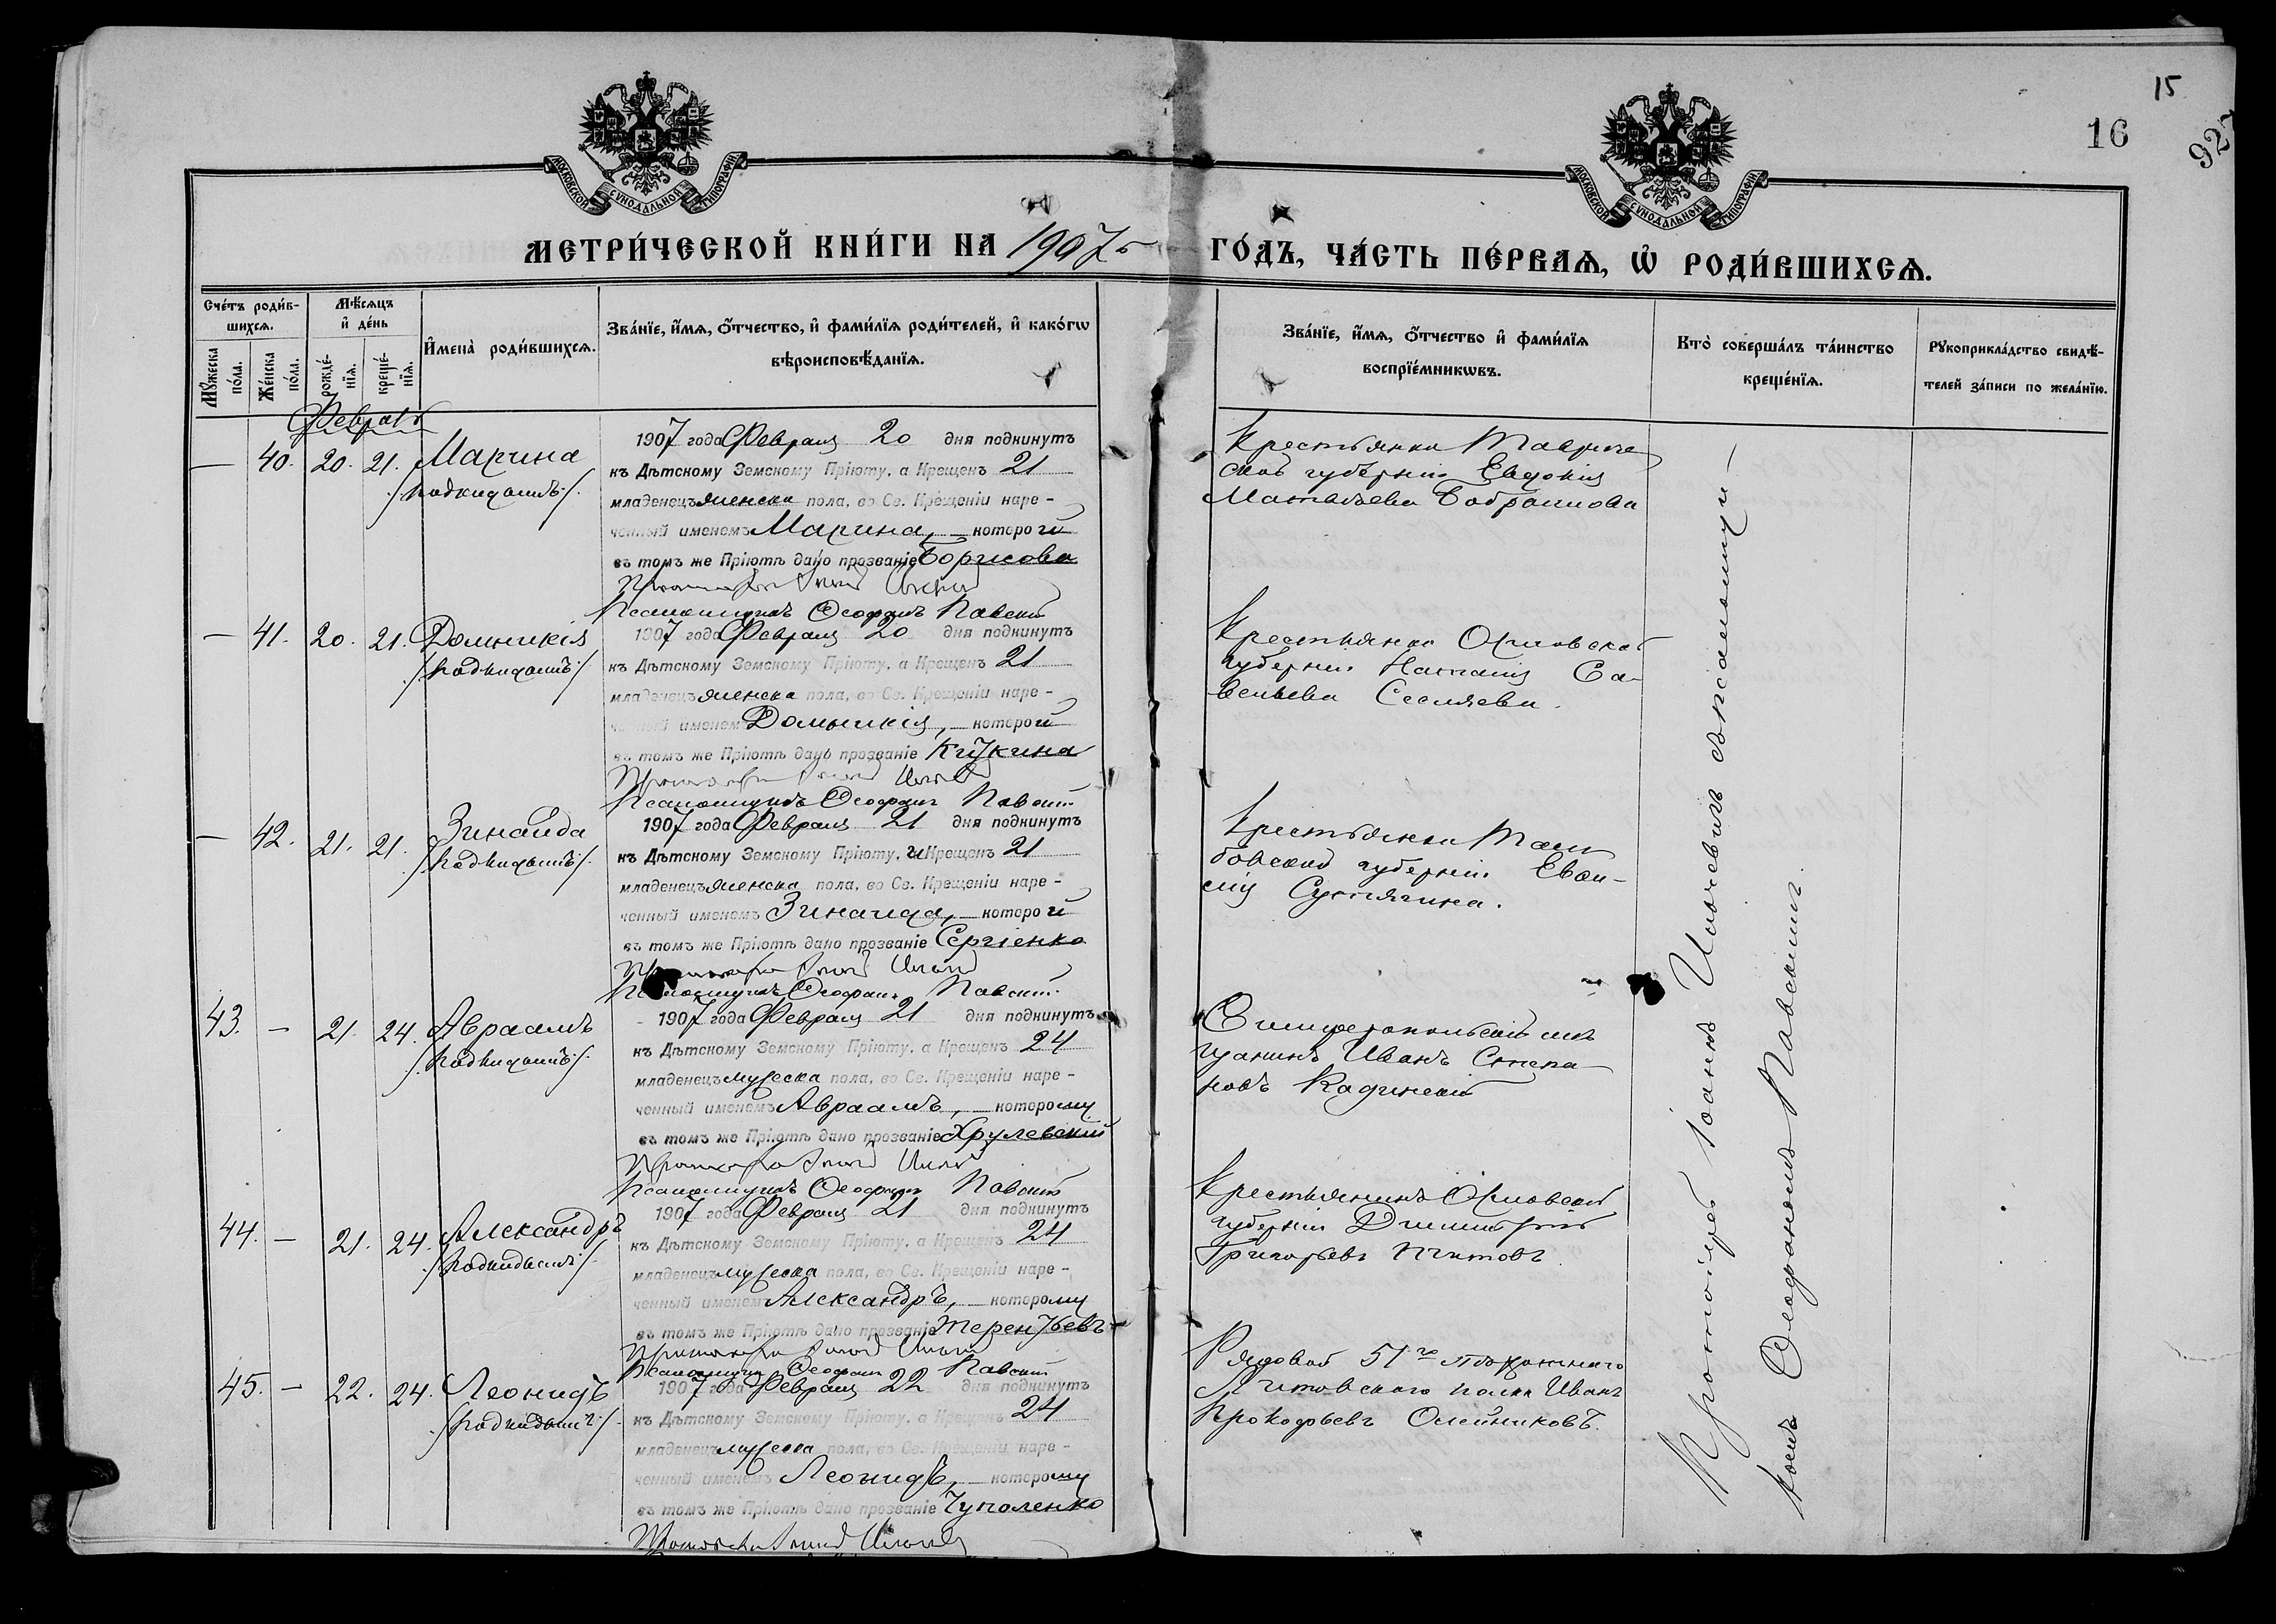 15
16
927
МОСКОВСКОЙ СѴНОДАЛЬНОЙ ТИПОГРАФІИ
МОСКОВСКОЙ СѴНОДАЛЬНОЙ ТИПОГРАФІИ
МЕТРИ́ЧЕСКОЙ КНИ́ГИ НА 1907 г
ГО́ДЪ, ЧА́СТЬ ПЕ́РВАѦ, Ѡ҆ РОДИ́ВШИХСѦ.
Сче́тъ роди́в-
шихсѧ.
Мꙋ́жеска по́ла.
Же́нска по́ла.
Мѣ́сѧцъ
и҆ де́нь
рожде́-
нїѧ.
креще́-
нїѧ.
И҆мена̀ роди́вшихсѧ.
Зва́нїе, и҆́мѧ, ѻ҆́тчество, и҆ фами́лїѧ роди́телей, и҆ како́гѡ
вѣроисповѣ́данїѧ.
Зва́нїе, и҆́мѧ, ѻ҆́тчество и҆ фами́лїѧ
воспрїе́мникѡвъ.
Кто̀ соверша́лъ та́инство
креще́нїѧ.
Рꙋкоприкла́дство свидѣ́-
телей за́писи по жела́нїю.
Февраль
— 40. 20. 21. Марина
/подкидышъ/.
1907 года Февраля 20 дня подкинутъ
къ Дѣтскому Земскому Пріюту, а Крещенъ 21
младенецъ женска пола, во Св. Крещеніи наре-
ченный именемъ Марина, — которой
въ томъ же Пріютѣ дано прозваніе Борисова
Псаломщикъ Ѳеофанъ Павскій
Крестьянка Тавриче
ской губерніи Евдокія
Матвѣева
— 41. 20. 21. Домникія
/подкидышъ/
1907 года Февраля 20 дня подкинутъ
къ Дѣтскому Земскому Пріюту, а Крещенъ 21
младенецъ женска пола, во Св. Крещеніи наре-
ченный именемъ Домникія, — которой
въ томъ же Пріютѣ дано прозваніе
Псаломщикъ Ѳеофанъ Павскій
Крестьянка Орловской
губерніи Наталія Са-
вельева
— 42. 21. 21. Зинаида
/подкидышъ/.
1907 года Февраля 21 дня подкинутъ
къ Дѣтскому Земскому Пріюту, и Крещенъ 21
младенецъ женска пола, во Св. Крещеніи наре-
ченный именемъ Зинаида, — которой
въ томъ же Пріютѣ дано прозваніе Сергіенко
Псаломщикъ Ѳеофанъ Павскій
Крестьянка Там
бовской губерніи
43. — 21. 24. Авраамъ
/подкидышъ/.
1907 года Февраля 21 дня подкинутъ
къ Дѣтскому Земскому Пріюту, а Крещенъ 24
младенецъ мужеска пола, во Св. Крещеніи наре-
ченный именемъ Авраамъ, — которому
въ томъ же Пріютѣ дано прозваніе Хрулевскій
Псаломщикъ Ѳеофанъ Павскій
Симферопольскій мѣ
щанинъ Иванъ Степа
новъ
44. — 21. 24. Александръ
/подкидышъ/.
1907 года Февраля 21 дня подкинутъ
къ Дѣтскому Земскому Пріюту, а Крещенъ 24
младенецъ мужеска пола, во Св. Крещеніи наре-
ченный именемъ Александръ, — которому
въ томъ же Пріютѣ дано прозваніе Терентьевъ
Псаломщикъ Ѳеофанъ Павскій
Крестьянинъ Орловской
губерніи Димитрій
Григорьевъ
45. — 22. 24. Леонидъ
/подкидышъ/.
1907 года Февраля 22 дня подкинутъ
къ Дѣтскому Земскому Пріюту, а Крещенъ 24
младенецъ мужеска пола, во Св. Крещеніи наре-
ченный именемъ Леонидъ, — которому
въ томъ же Пріютѣ дано прозваніе Чуполенко
Рядовой 51го пѣхотнаго
Литовскаго полка Иванъ
Прокофьевъ Олейниковъ.
Протоіерей Іоаннъ съ псаломщи—
комъ Ѳеофаномъ Павскимъ.